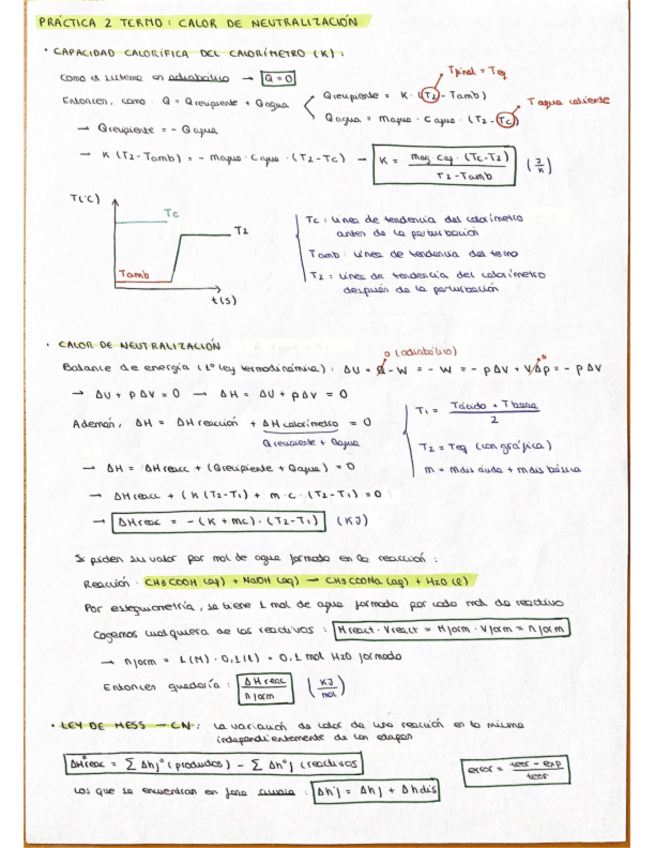 PRÁCTICA 2 TERMO: CALOR DE NEUTRALIZACIÓN
· CAPACIDAD CALORÍFICA DEL CALORÍMETRO (K):
Como el sistema es adiabático → Q = 0
Tfinal = Teq
Entonces, como: Q = Qrecipiente + Qagua
Qrecipiente = K · (T2 - Tamb)
T agua caliente
Qagua = magua · Cagua · (T2 - Tc)
→ Qrecipiente = - Qagua
→ K (T2 - Tamb) = - magua · Cagua · (T2 - Tc) → K = mag cag · (Tc - T2) / T2 - Tamb (J/K)
T(°C)
Tc
T2
Tamb
t(s)
Tc: línea de tendencia del calorímetro
antes de la perturbación
Tamb: línea de tendencia del termo
T2: línea de tendencia del calorímetro
después de la perturbación
· CALOR DE NEUTRALIZACIÓN
0 (adiabático)
Balance de energía (1º ley termodinámica): ΔU = Q - W = - W = - pΔV + VΔp = - pΔV
0
→ ΔU + pΔV = 0 → ΔH = ΔU + pΔV = 0
T1 = Tácido + Tbase / 2
Además, ΔH = ΔH reacción + ΔH calorímetro = 0
Qrecipiente + Qagua
T2 = Teq (con gráfica)
m = mdis ácida + mdis básica
→ ΔH = ΔHreacc + (Qrecipiente + Qagua) = 0
→ ΔHreacc + (K(T2 - T1) + m · c · (T2 - T1) = 0
→ ΔHreac = - (K + mc) · (T2 - T1) (KJ)
Si piden su valor por mol de agua formado en la reacción:
Reacción: CH3COOH (aq) + NaOH (aq) → CH3COONa (aq) + H2O (l)
Por estequiometría, se tiene 1 mol de agua formada por cada mol de reactivo
Cogemos cualquiera de los reactivos: Mreact · Vreact = Mform · Vform = nform
→ nform = 1(M) · 0,1(l) = 0,1 mol H2O formado
Entonces quedaría: ΔHreac / nform (KJ/mol)
· LEY DE HESS → CN: La variación de calor de una reacción es la misma
independientemente de las etapas
ΔH°reac = Σ Δhf° (productos) - Σ Δh°f (reactivos)
error = teor - exp / teor
Los que se encuentran en fase acuosa: Δh'f = Δhf + Δhdis